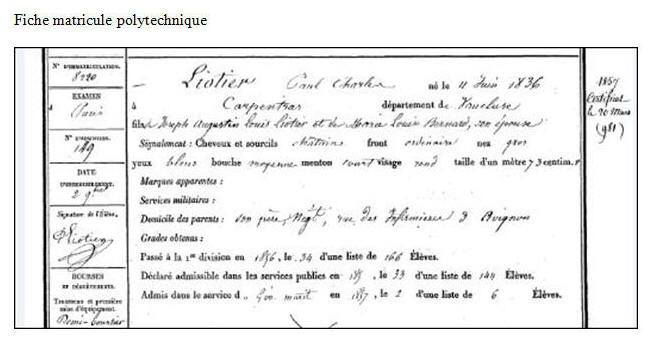 Fiche matricule polytechnique
N° D'IMMATRICULATION.
8220
EXAMEN
à Paris
N° D'
149
DATE
2 9bre
Signature de l'Élève.
Liotier
BOURSES
ET DÉGRÈVEMENTS.
Trousseau et première mise d'équipement
Demi-boursier
Liotier Paul Charles né le 11 Juin 1836
à Carpentras département de Vaucluse
fils de Joseph Augustin Louis Liotier et de Maria Louise Bernard, son épouse
Signalement : Cheveux et sourcils châtains front ordinaire nez gros
yeux bleus bouche moyenne menton court visage rond taille d'un mètre 73 centim.s
Marques apparentes :
Services militaires :
Domicile des parents : son père, Négt, rue des Infirmières 3 Avignon
Grades obtenus :
Passé à la 1re division en 1856, le 34 d'une liste de 166 Élèves.
Déclaré admissible dans les services publics en 185, le 33 d'une liste de 144 Élèves.
Admis dans le service d. Gén. marit en 1857, le 2 d'une liste de 6 Élèves.
1857
Certificat
le 20 Mars
(911)